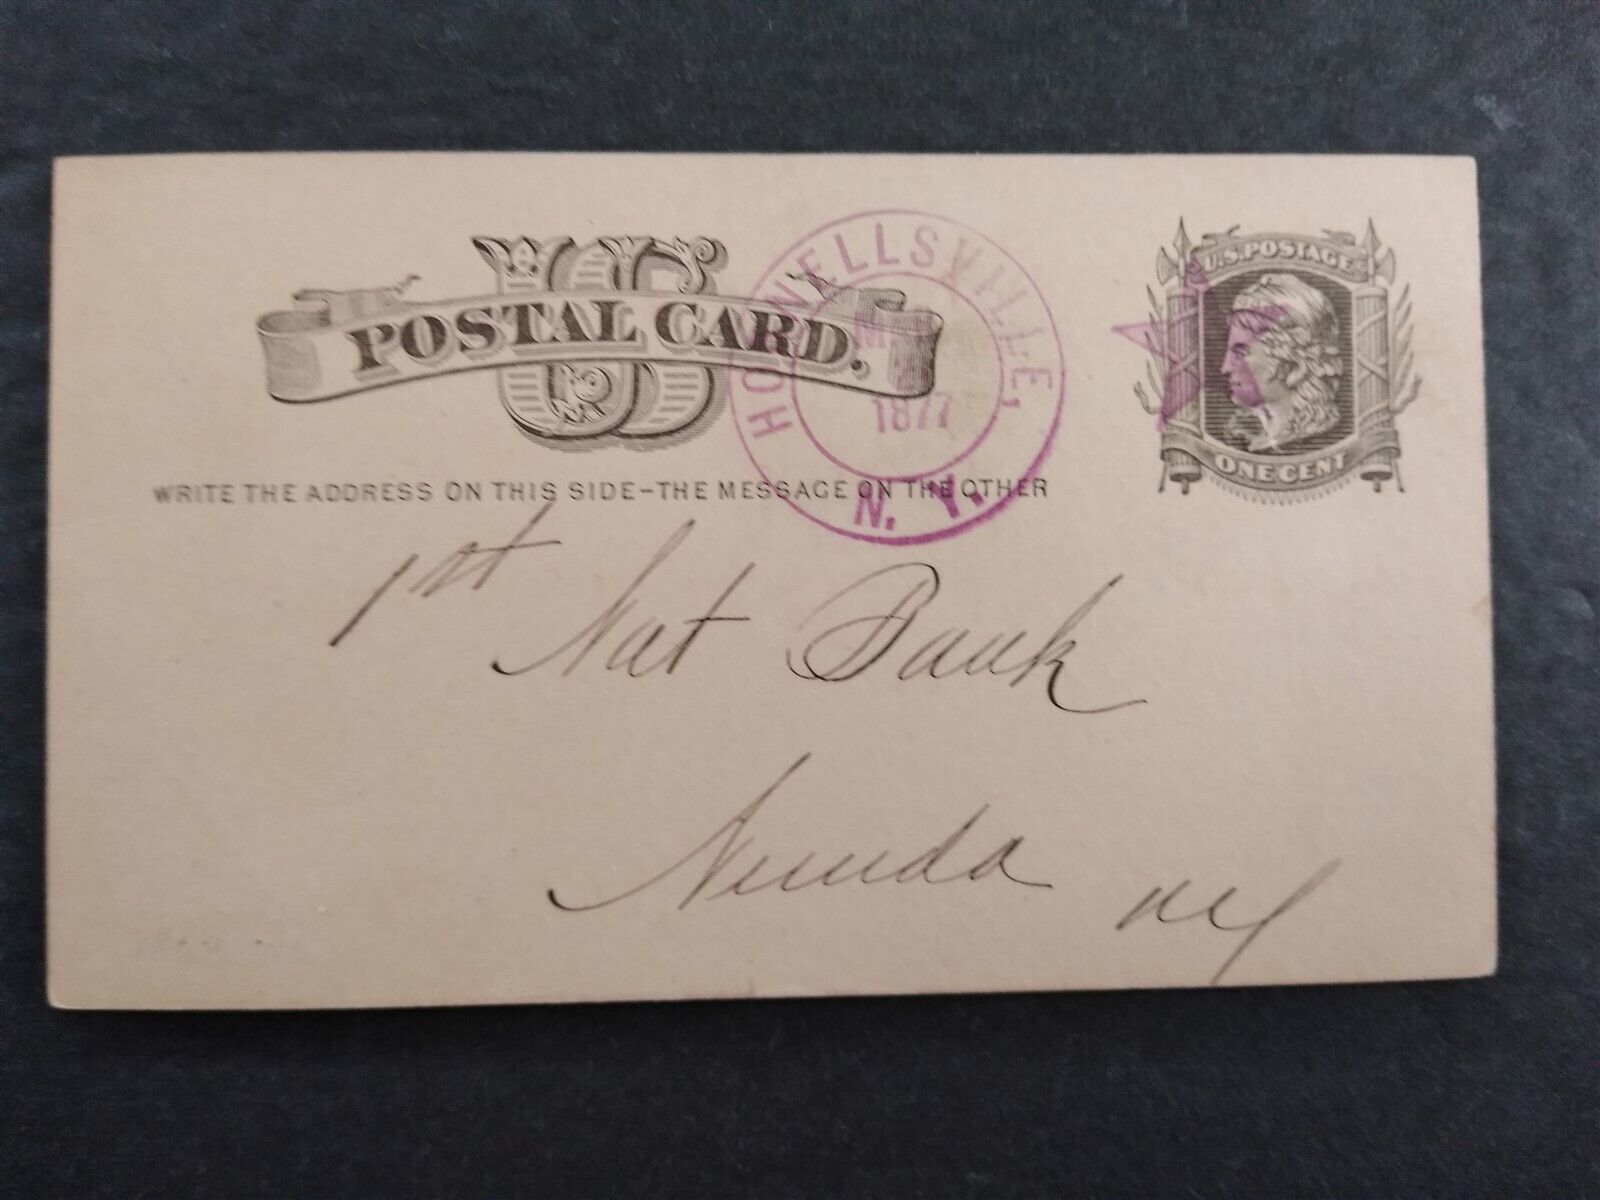 US
POSTAL CARD.
HORNELLSVILLE,
1877
N. Y.
U.S. POSTAGE
ONE CENT
WRITE THE ADDRESS ON THIS SIDE—THE MESSAGE ON THE OTHER
1st Nat Bank
Nunda NY